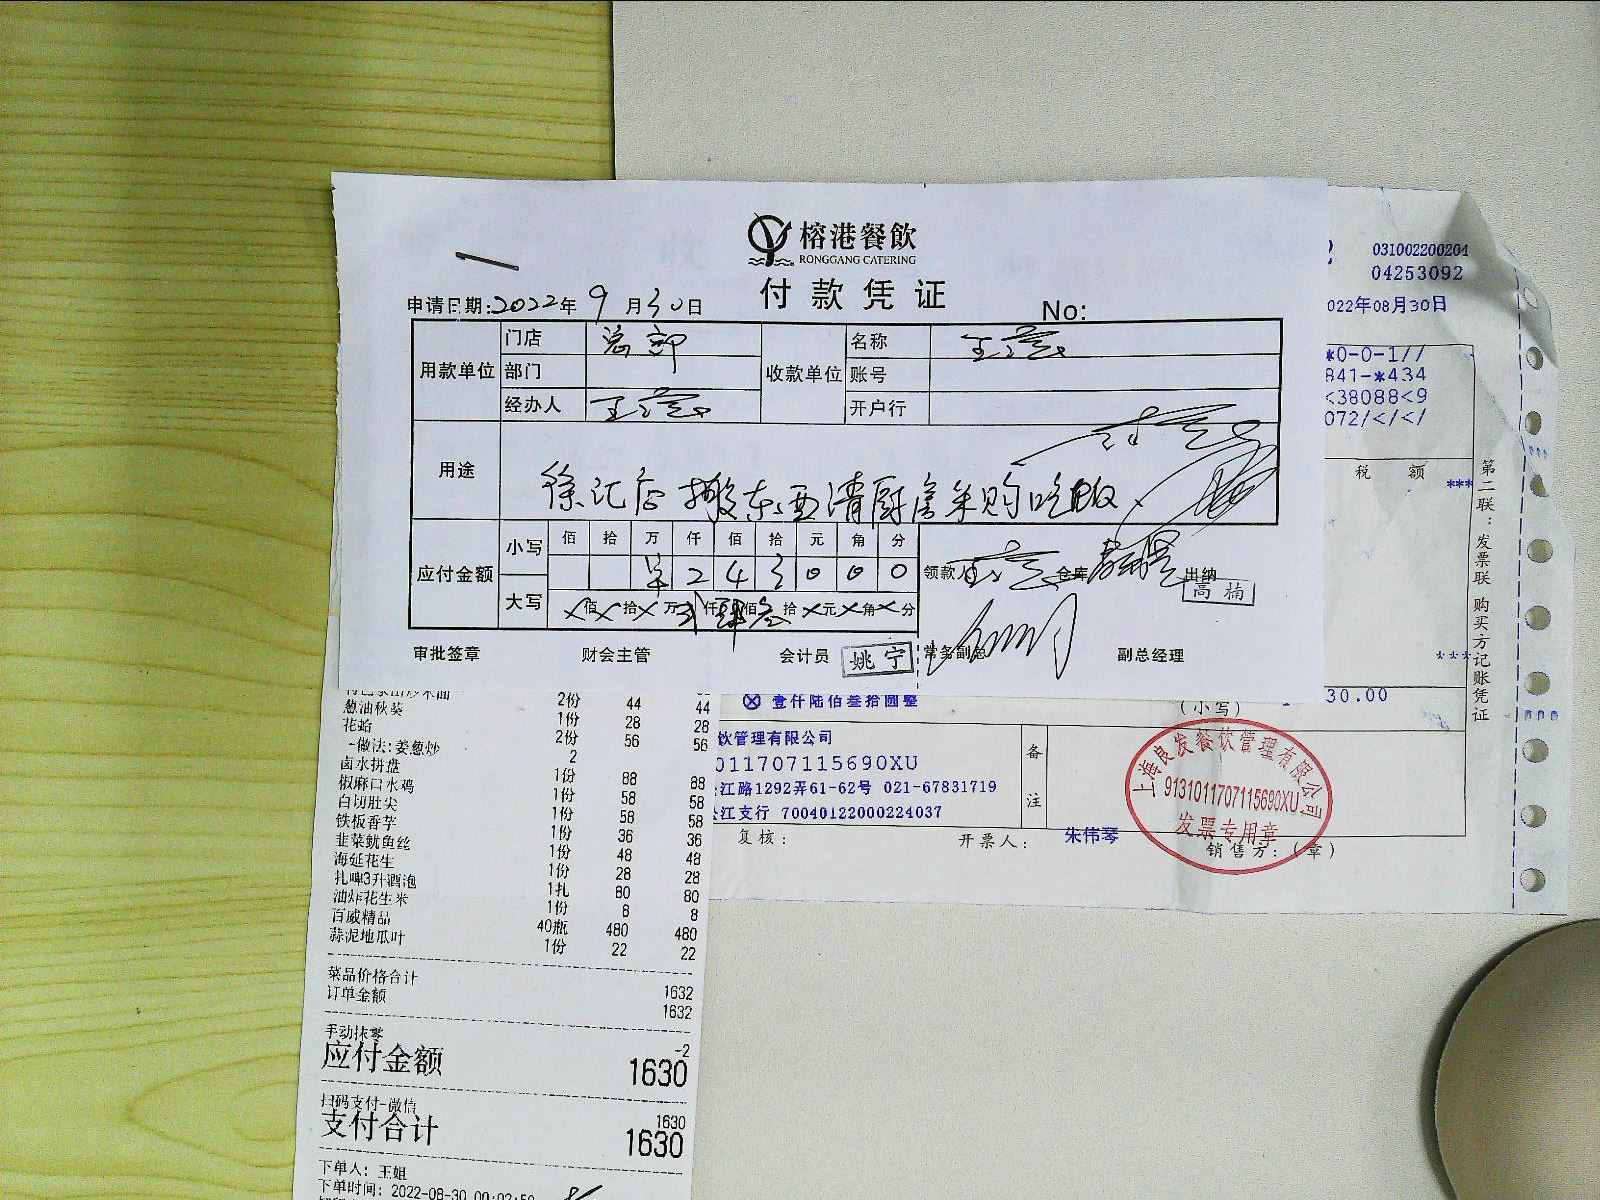 榕港餐飲
RONGGANG CATERING
付款凭证
申请日期:2022年9月30日
No:
用款单位
门店 总部
部门
经办人
收款单位
名称
账号
开户行
用途
徐汇店搬东西清厨房采购吃饭
应付金额
小写
佰 拾 万 仟 佰 拾 元 角 分
2 4 3 0 0 0
大写
佰 拾 万 仟 佰 拾 元 角 分
领款人
仓库
出纳
高楠
审批签章
财会主管
会计员
姚宁
常务副总
副总经理
031002200204
04253092
022年08月30日
*0-0-1//
841-*434
<38088<9
072/<</
税 额
***
第二联:发票联 购买方记账凭证
***
壹仟陆佰叁拾圆整
(小写)
30.00
饮管理有限公司
011707115690XU
江路1292弄61-62号 021-67831719
江支行 70040122000224037
备注
复核:
开票人: 朱伟琴
销售方:(章)
上海良发餐饮管理有限公司
9131011707115690XU
发票专用章
葱油秋葵 2份 44 44
花蛤 1份 28 28
-做法:姜葱炒 2份 56 56
卤水拼盘 2
椒麻口水鸡 1份 88 88
白切肚尖 1份 58 58
铁板香芋 1份 58 58
韭菜鱿鱼丝 1份 36 36
海延花生 1份 48 48
扎啤3升酒泡 1份 28 28
油炸花生米 1扎 80 80
百威精品 1份 8 8
蒜泥地瓜叶 40瓶 480 480
1份 22 22
菜品价格合计 1632
订单金额 1632
手动抹零 -2
应付金额 1630
扫码支付-微信 1630
支付合计 1630
下单人: 王姐
下单时间: 2022-08-30